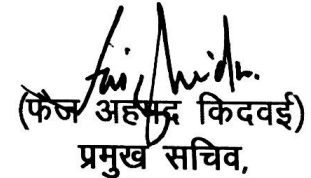 (फैज अहमद किदवई)
प्रमुख सचिव,